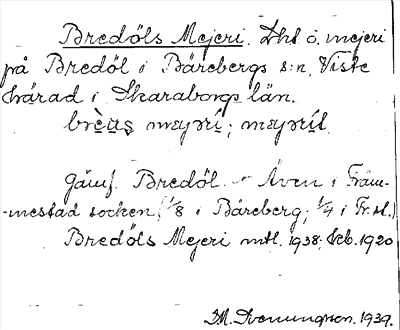 Bredöls Mejeri. Lht o. mejeri
på Bredöl i Bärebergs s:n, Viste
härad i Skaraborgs län.
brèùs mejrí; mejríl.
Jämf. Bredöl. - Även i Främ-
-mestad socken (1/8 i Bäreberg; 1/4 i Fr. st.)
Bredöls Mejeri mtl. 1938; Jeb. 1920
M. Svenungson. 1939.